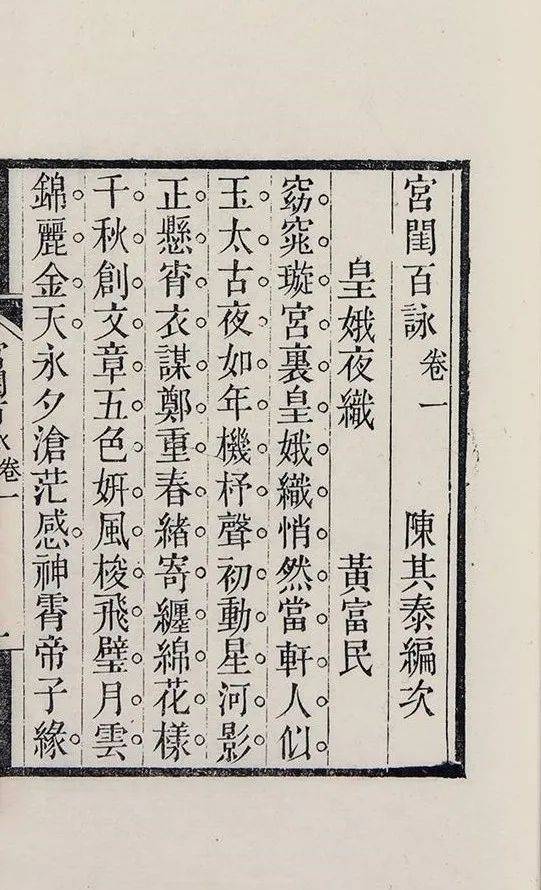 宮閨百詠 卷一 陳其泰編次
皇娥夜織 黃富民
窈窕璇宮裏皇娥織悄然當軒人似
玉太古夜如年機杼聲初動星河影
正懸宵衣謀鄭重春緒寄纏綿花樣
千秋創文章五色妍風梭飛璧月雲
錦麗金天永夕滄茫感神霄帝子緣
卷一